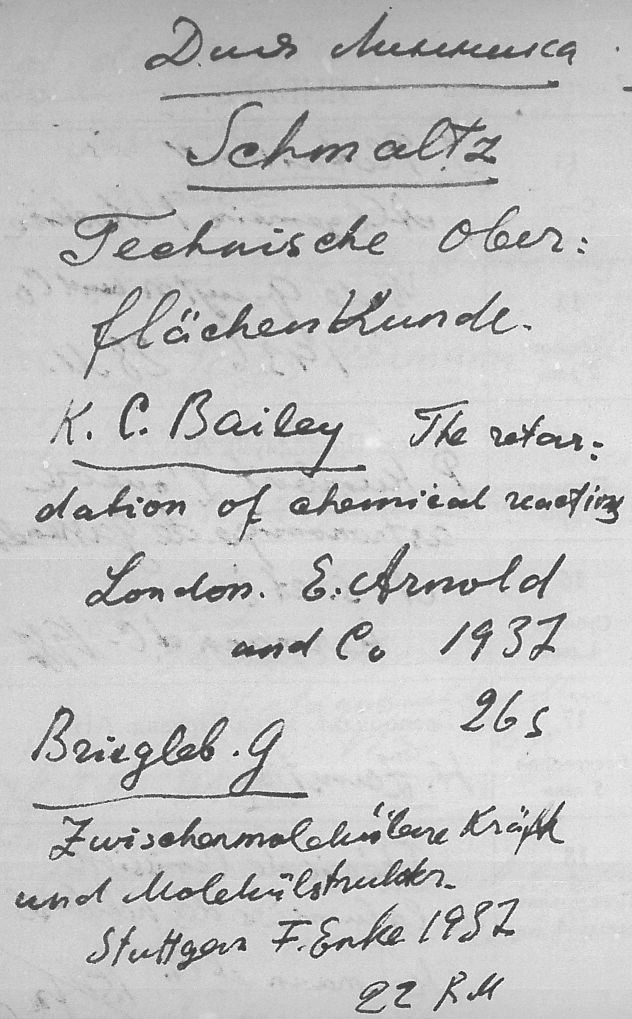 Для Линника
Schmaltz
Technische Ober:
flächenkunde.
K. C. Bailey The retar:
dation of chemical reactions
London. E. Arnold
and Co 1937
26 s
Briegleb. G
Zwischenmolekülare Kräfte
und Molekülstruktur.
Stuttgart F. Enke 1937
22 RM